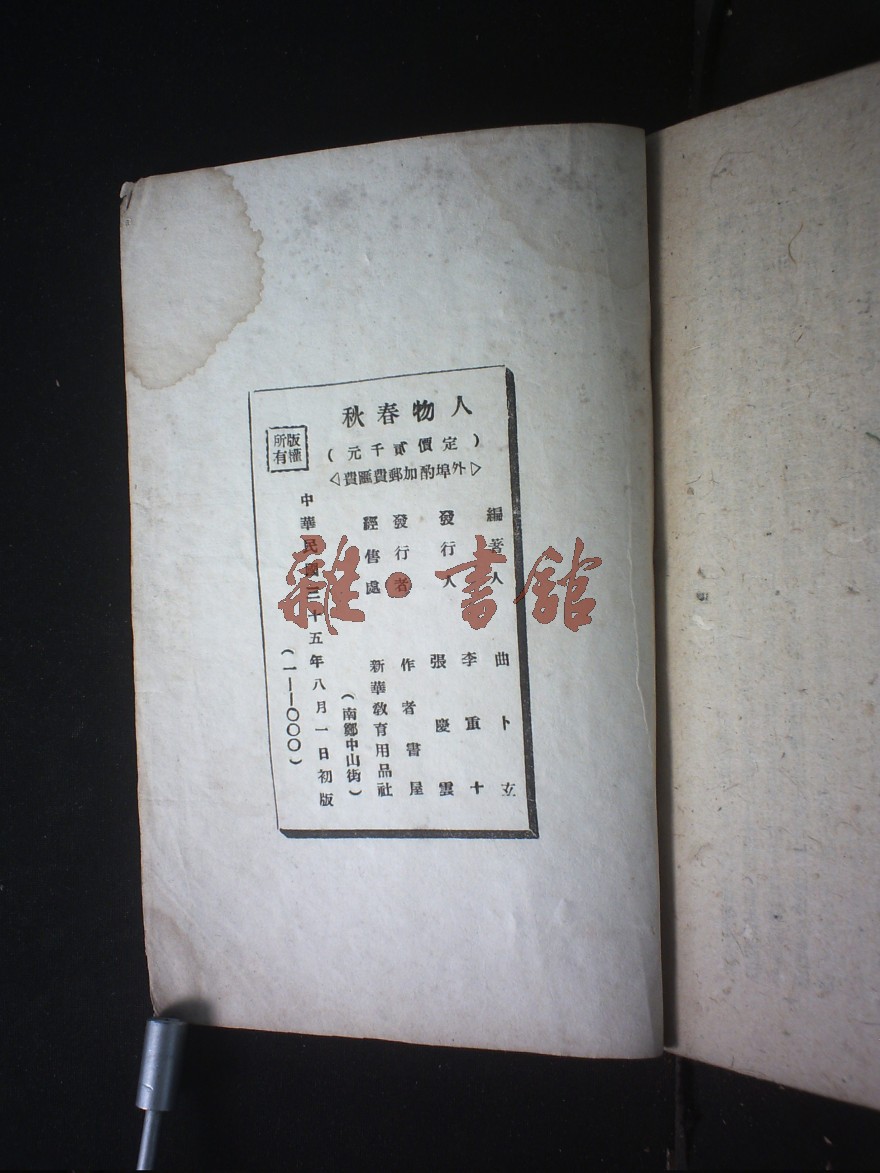 人物春秋
(定價貳千元)
▷外埠酌加郵費匯費◁
版權
所有
編著人 曲卜玄
李重十
發行人 張慶雲
發行者 作者書屋
經售處 新華教育用品社
(南鄭中山街)
中華民國三十五年八月一日初版
(一—一〇〇〇)
雜·書館